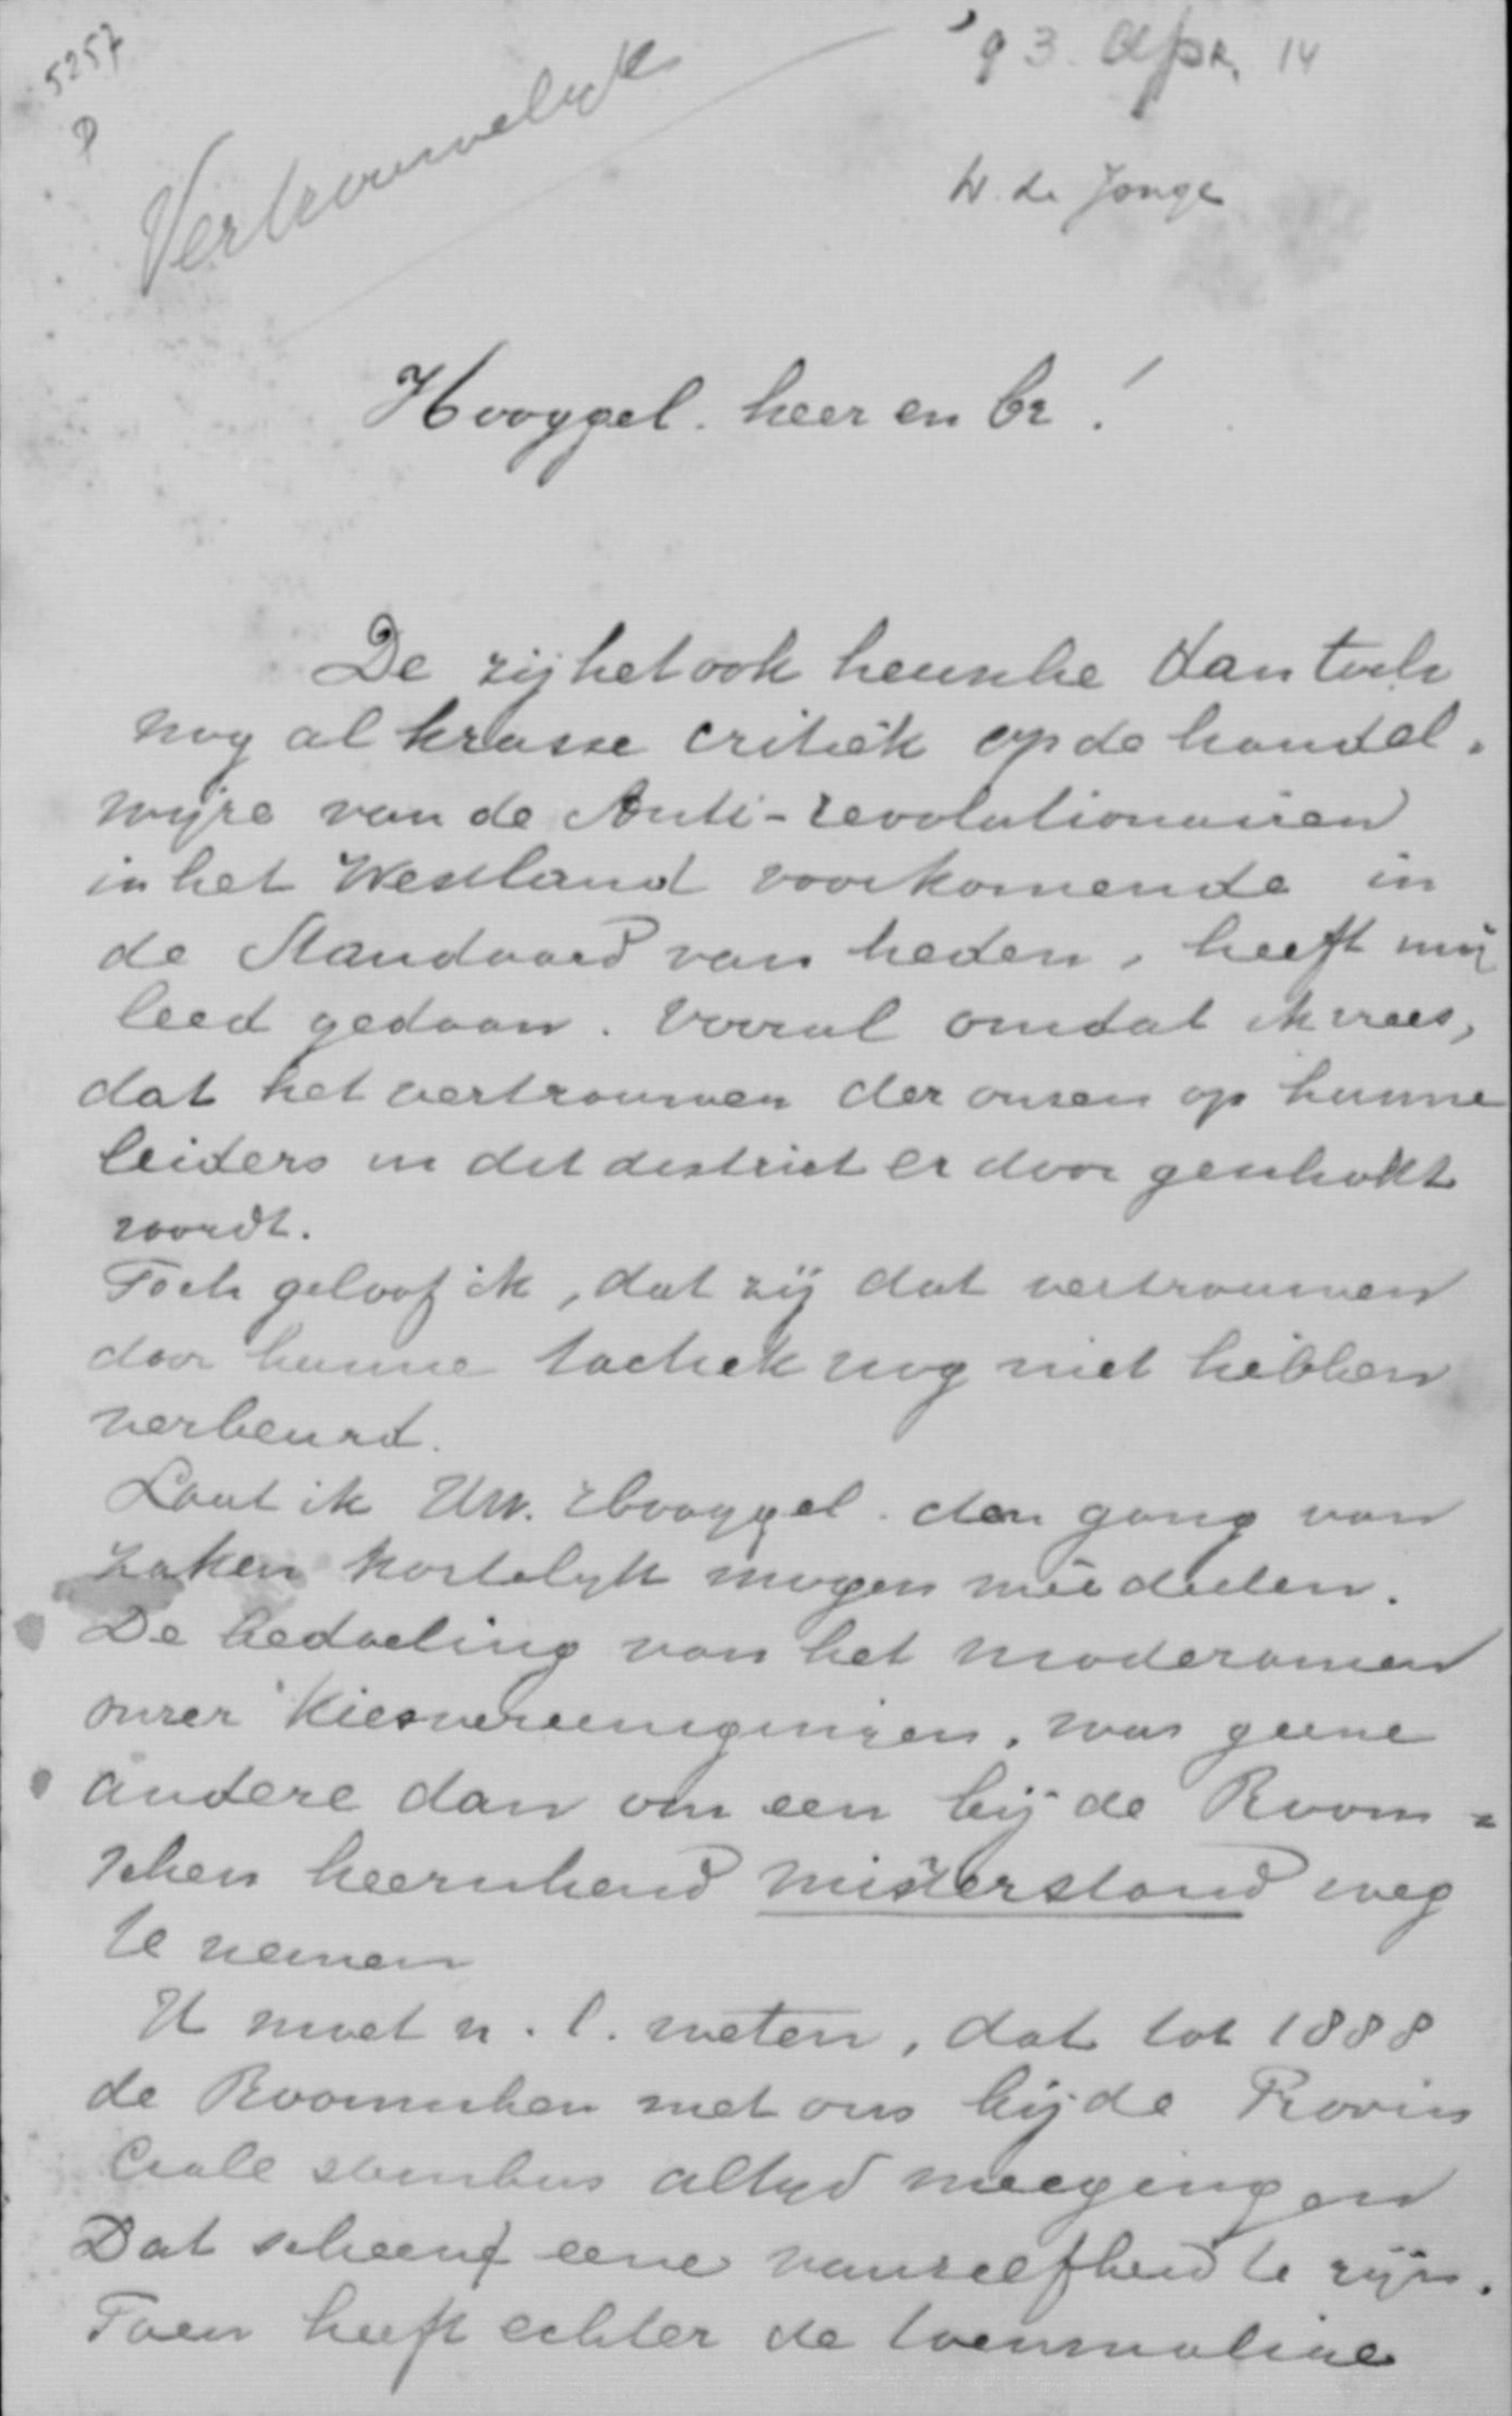 5257
P
Vertrouwelijk
'93. Apr. 14
W. de Jonge
Hooggel. heer en br!
De zij het ook heusche dan toch
nog al krasse critiek op de handel-
wijze van de Anti-revolutionairen
in het Westland voorkomende in
de Standaard van heden, heeft mij
leed gedaan. Vooral omdat ik vrees,
dat het vertrouwen der onzen op hunne
leiders in dit district er door geschokt
wordt.
Toch geloof ik, dat zij dat vertrouwen
door hunne tactiek nog niet hebben
verbeurd.
Laat ik Uw. Hooggel. den gang van
zaken kortelijk mogen meêdeelen.
De bedoeling van het moderamen
onzer Kiesvereenigingen, was geene
andere dan om een bij de Room-
schen heerschend misverstand weg
te nemen
U moet n.l. weten, dat tot 1888
de Roomschen met ons bij de Provin
ciale stembus altijd meegingen
Dat scheen eene vanzelfheid te zijn.
Toen heeft echter de toenmalige